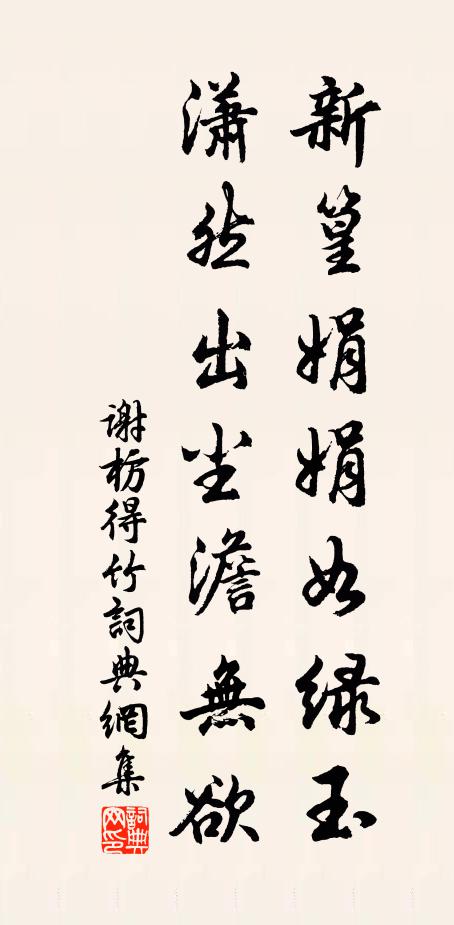 新篁娟娟如绿玉
瀟然出尘澹無欲
谢枋得竹詞典網集
詞典网印